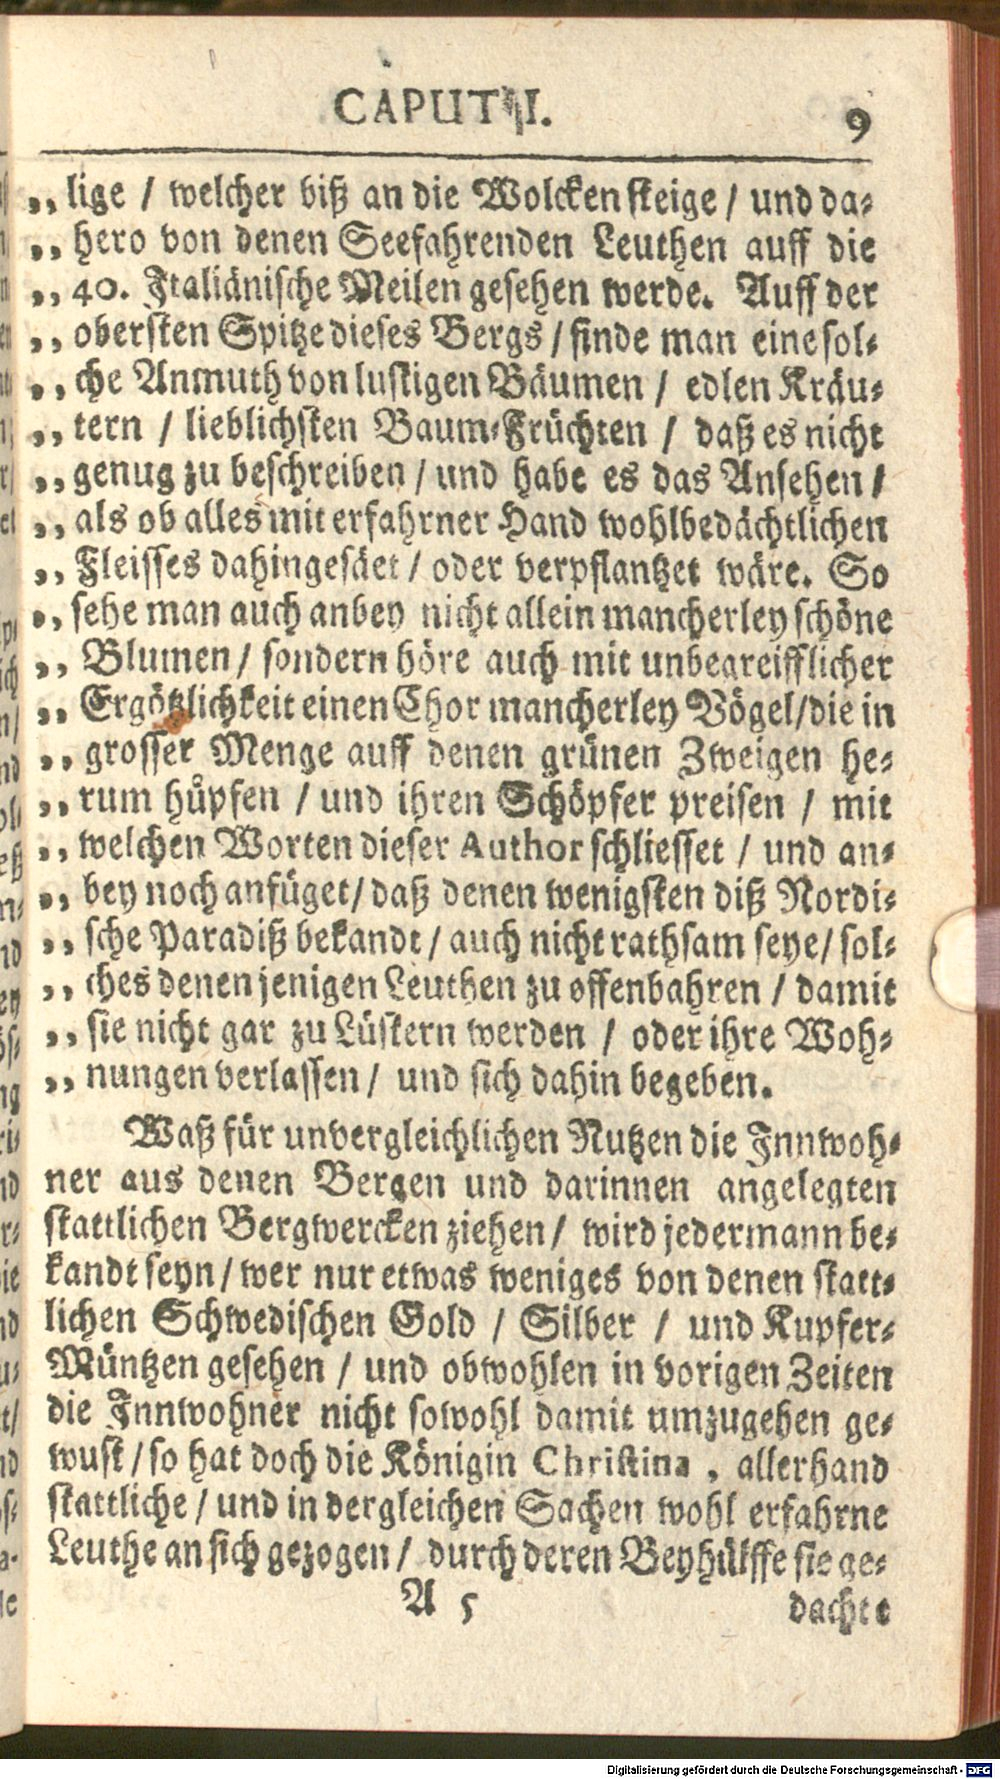 CAPUT II.
9
„ lige / welcher biß an die Wolcken steige / und da-
„ hero von denen Seefahrenden Leuthen auff die
„ 40. Italiänische Meilen gesehen werde. Auff der
„ obersten Spitze dieses Bergs / finde man eine sol-
„ che Anmuth von lustigen Bäumen / edlen Kräu-
„ tern / lieblichsten Baum-Früchten / daß es nicht
„ genug zu beschreiben / und habe es das Ansehen /
„ als ob alles mit erfahrner Hand wohlbedächtlichen
„ Fleisses dahingesäet / oder verpflantzet wäre. So
„ sehe man auch anbey nicht allein mancherley schöne
„ Blumen / sondern höre auch mit unbegreifflicher
„ Ergötzlichkeit einen Chor mancherley Vögel / die in
„ grosser Menge auff denen grünen Zweigen he-
„ rum hüpfen / und ihren Schöpfer preisen / mit
„ welchen Worten dieser Author schliesset / und an-
„ bey noch anfüget / daß denen wenigsten diß Nordi-
„ sche Paradiß bekandt / auch nicht rathsam seye / sol-
„ ches denen jenigen Leuthen zu offenbahren / damit
„ sie nicht gar zu Lüstern werden / oder ihre Woh-
„ nungen verlassen / und sich dahin begeben.
Waß für unvergleichlichen Nutzen die Innwoh-
ner aus denen Bergen und darinnen angelegten
stattlichen Bergwercken ziehen / wird jedermann be-
kandt seyn / wer nur etwas weniges von denen statt-
lichen Schwedischen Gold / Silber / und Kupfer-
Müntzen gesehen / und obwohlen in vorigen Zeiten
die Innwohner nicht sowohl damit umzugehen ge-
wust / so hat doch die Königin Christina, allerhand
stattliche / und in dergleichen Sachen wohl erfahrne
Leuthe an sich gezogen / durch deren Beyhülffe sie ge-
A 5
dachte
Digitalisierung gefördert durch die Deutsche Forschungsgemeinschaft - DFG